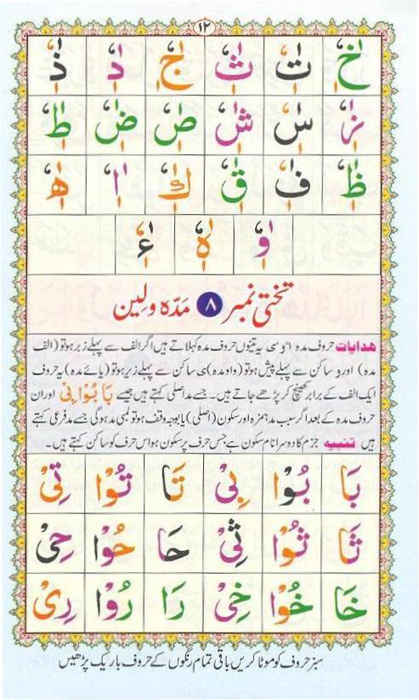 ١٢
خٰ تٰ ثٰ جٰ دٰ ذٰ
زٰ سٰ شٰ صٰ ضٰ طٰ
ظٰ فٰ قٰ كٰ اٰ ھٰ
وٰ ہٰ ءٰ
تختی نمبر ۸ مَدّہ ولین
ھدایات حروف مدہ ا و ی یہ تینوں حروف مدہ کہلاتے ہیں اگر الف سے پہلے زبر ہو تو (الف
مدہ) اور و ساکن سے پہلے پیش ہو تو (واو مدہ) ی ساکن سے پہلے زیر ہو تو (یائے مدہ) یہ حروف
ایک الف کے برابر کھینچ کر پڑھے جاتے ہیں۔ جسے مد اصلی کہتے ہیں جیسے بَا بُوْا بِیْ اور ان
حروف مدہ کے بعد اگر سبب مد ہمزہ اور سکون (اصلی) یا بوجہ وقف ہو تو لمبی مد ہوگی جسے مد فرعی کہتے
ہیں تنبیہ جزم کا دوسرا نام سکون ہے جس حرف پر سکون ہو اس حرف کو ساکن کہتے ہیں۔
بَا بُوْا بِىْ تَا تُوْا تِىْ
ثَا ثُوْا ثِىْ حَا حُوْا حِىْ
خَا خُوْا خِىْ رَا رُوْا رِىْ
سبز حروف کو موٹا کریں باقی تمام رنگوں کے حروف باریک پڑھیں